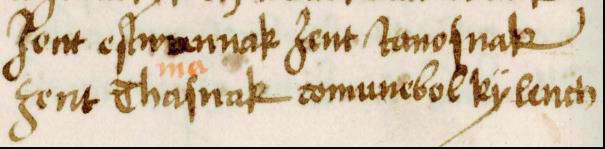 Zent estwannak Zent Janosnak
ma
Zent Thasnak comunebol kÿlench